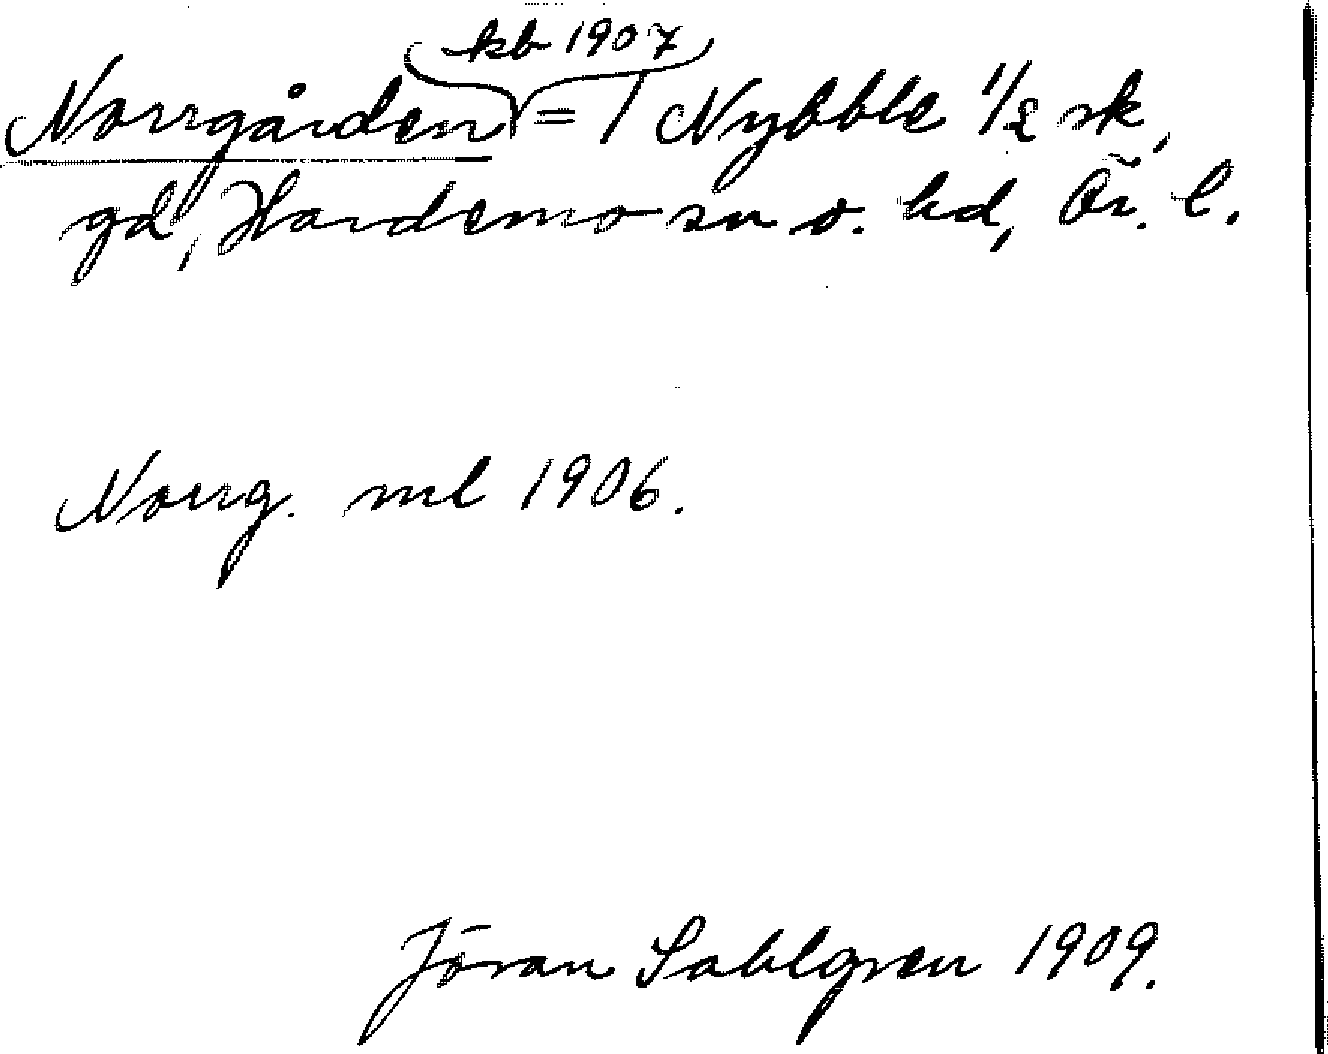 kb 1907
Norrgården = 1 Nybble 1/2 sk,
gd, Hardemo sn o. hd, Ör. l.
Norrg. ml 1906.
Jöran Sahlgren 1909.